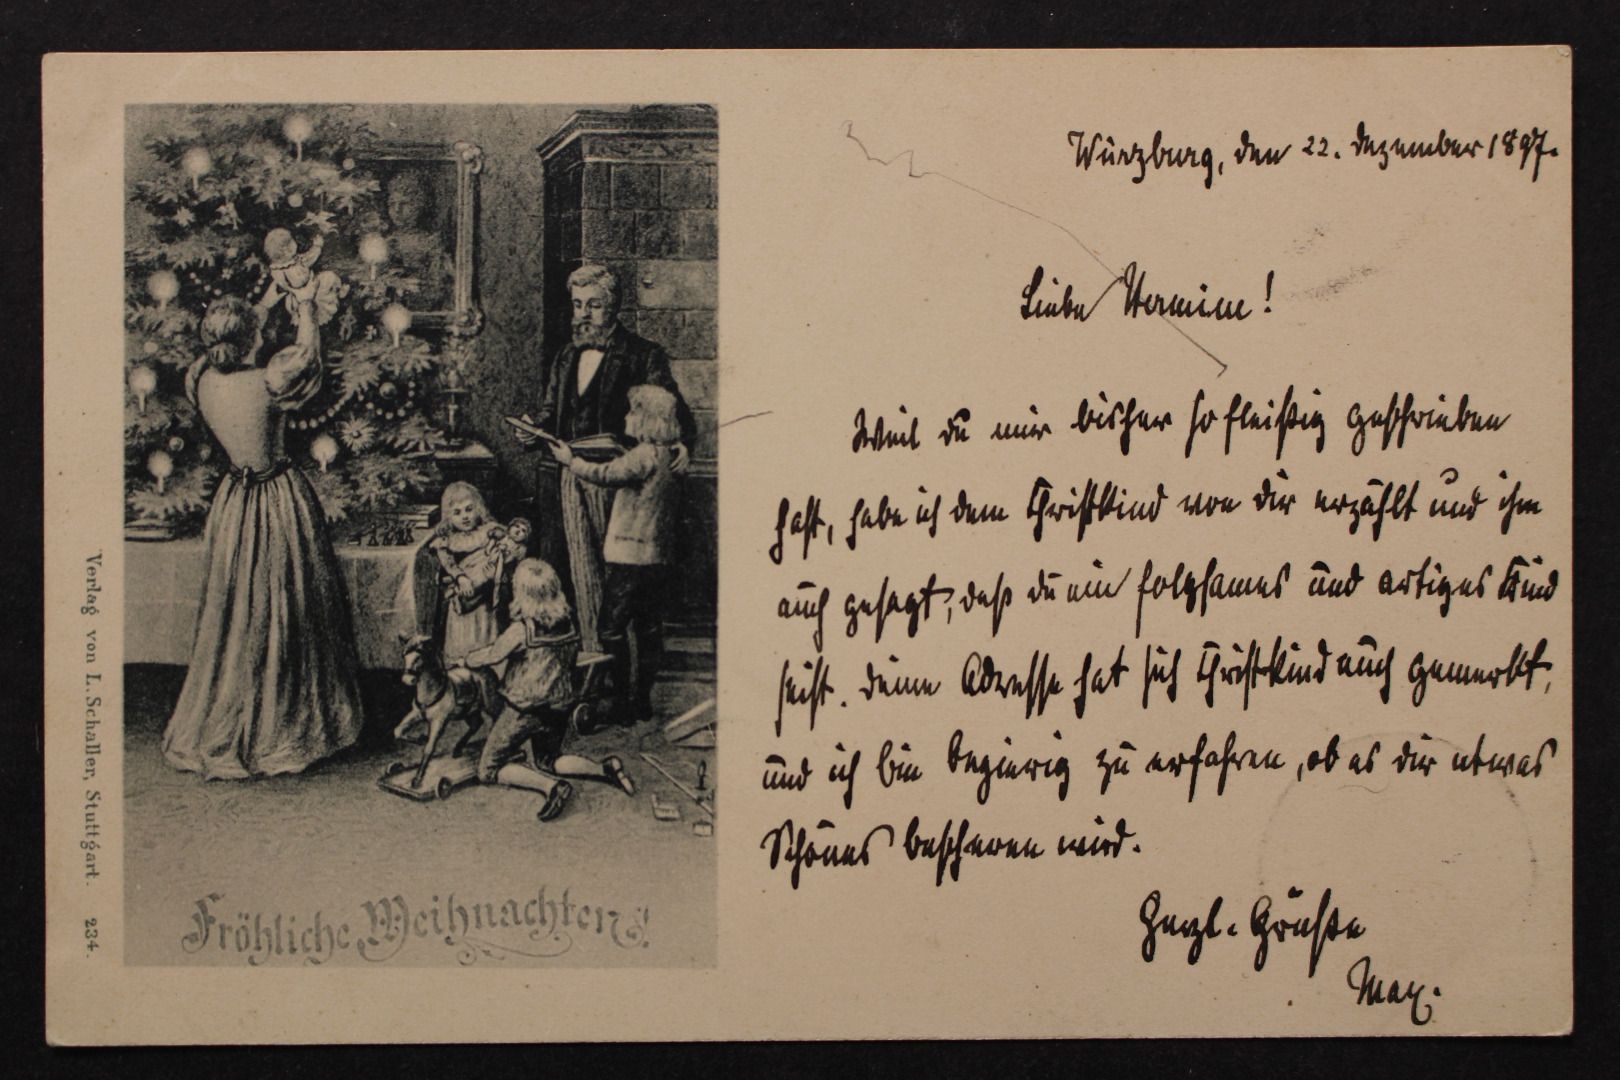 Würzburg, den 22. Dezember 1897.
Liebe Hermine!
Weil du mir bisher so fleißig geschrieben
hast, habe ich dem Christkind von dir erzählt und ihm
auch gesagt, daß du ein folgsames und artiges Kind
seist. Deine Adresse hat sich Christkind auch gemerkt,
und ich bin begierig zu erfahren, ob es dir etwas
Schönes bescheren wird.
Herzl. Grüße
Max.
Fröhliche Weihnachten!
Verlag von L. Schaller, Stuttgart. 234.